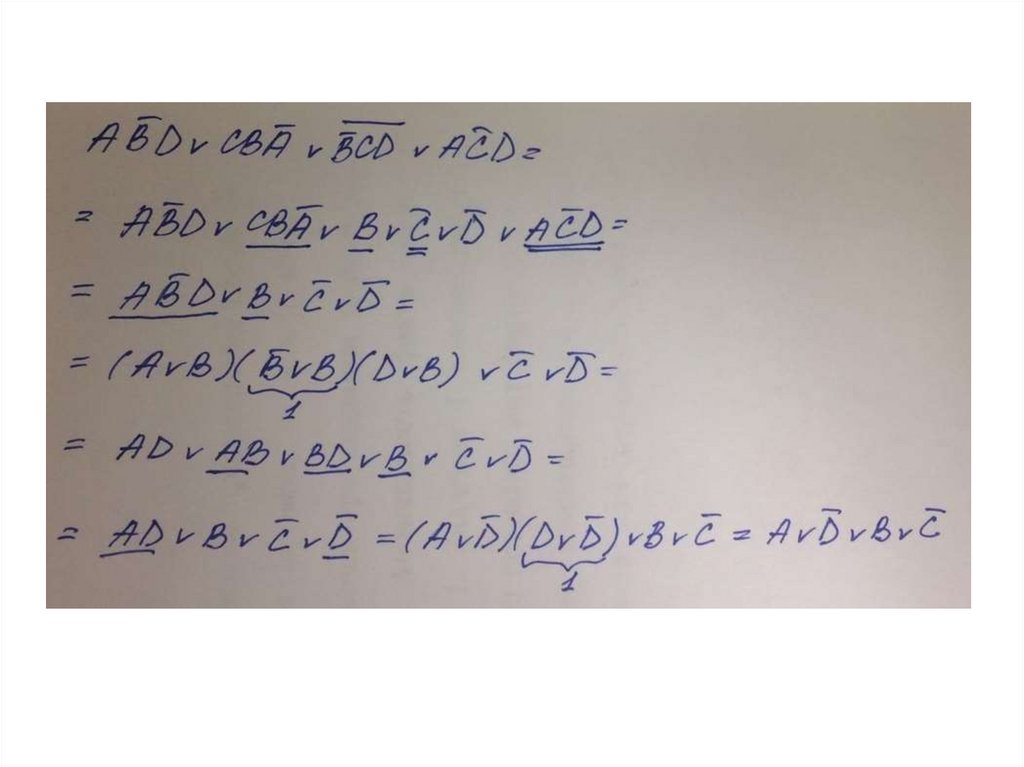 AB̅D ∨ CBA̅ ∨ \overline{B̅CD} ∨ AC̅D =
= AB̅D ∨ CBA̅ ∨ B ∨ C̅ ∨ D̅ ∨ AC̅D =
= AB̅D ∨ B ∨ C̅ ∨ D̅ =
= (A ∨ B)(B̅ ∨ B)(D ∨ B) ∨ C̅ ∨ D̅ =
1
= AD ∨ AB ∨ BD ∨ B ∨ C̅ ∨ D̅ =
= AD ∨ B ∨ C̅ ∨ D̅ = (A ∨ D̅)(D ∨ D̅) ∨ B ∨ C̅ = A ∨ D̅ ∨ B ∨ C̅
1